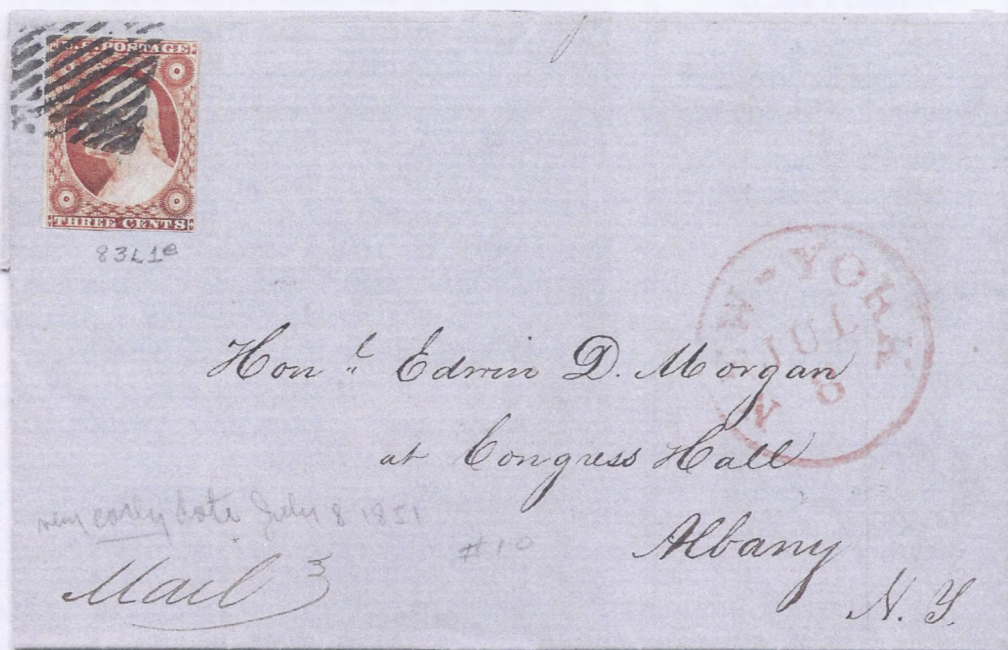 U.S. POSTAGE
THREE CENTS
83L1e
NEW-YORK
JUL
8
Hon.l Edwin D. Morgan
at Congress Hall
Albany
N. Y.
very early date July 8 1851
#10
Mail